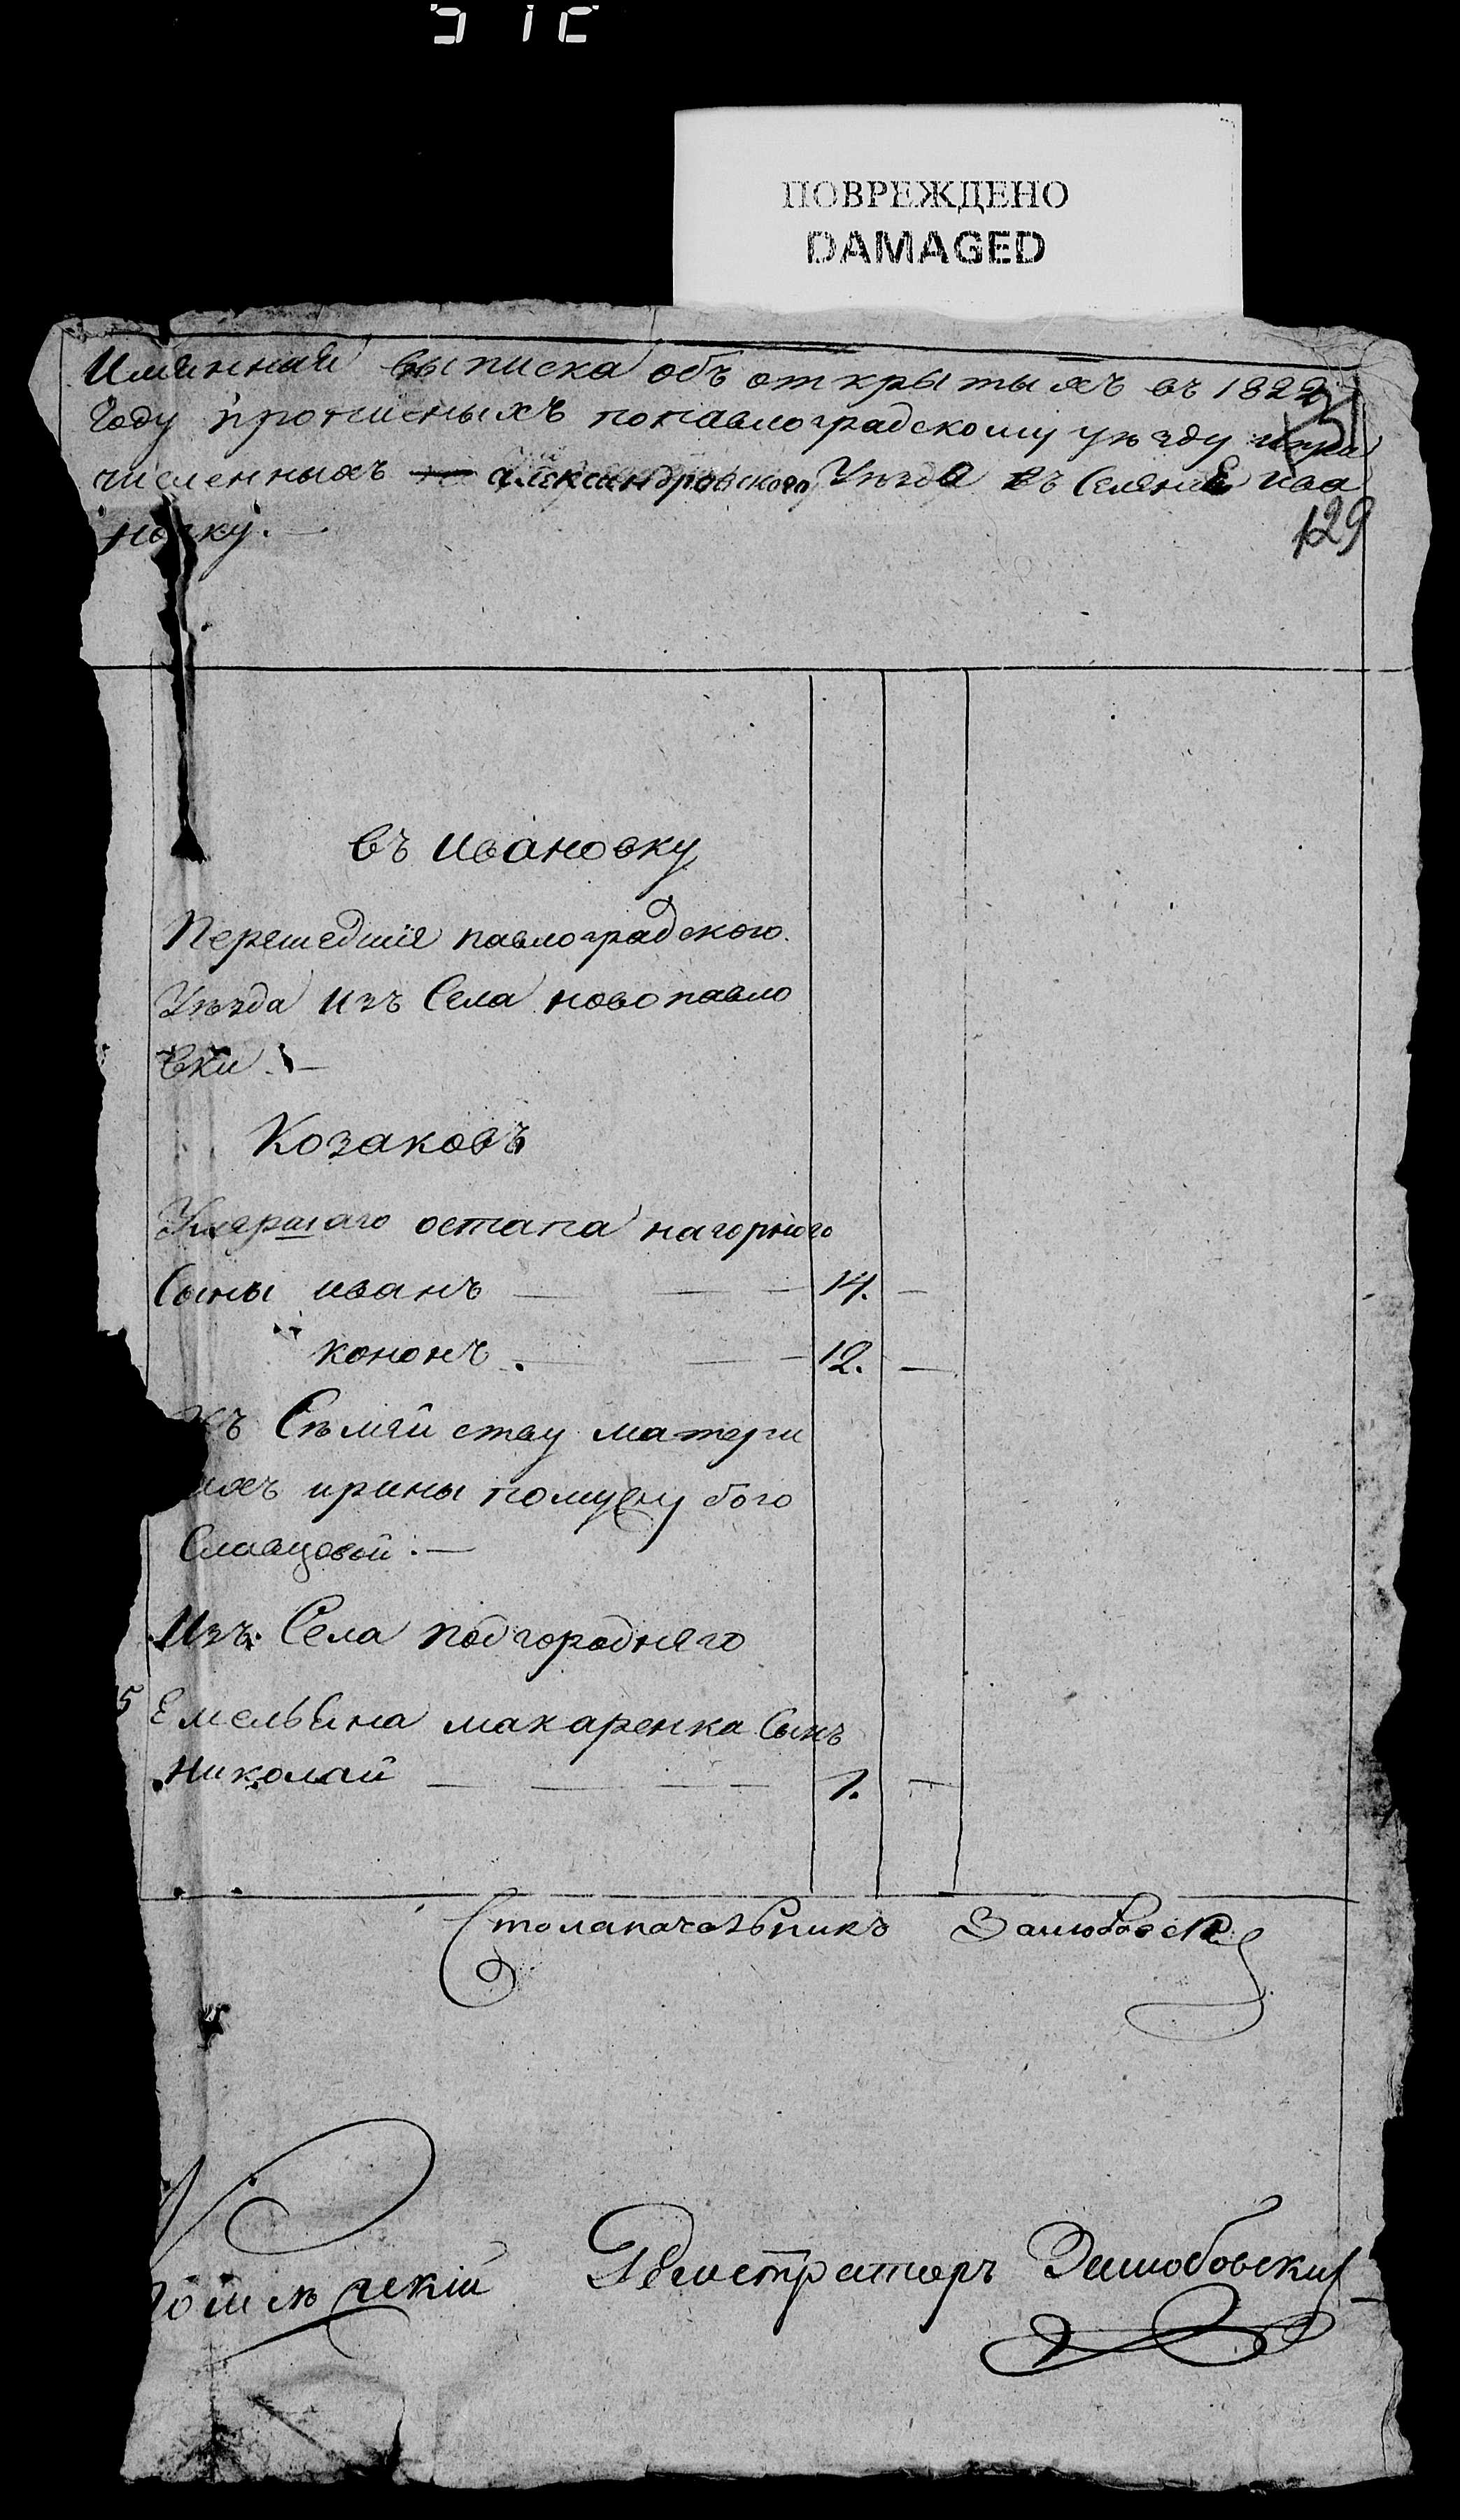 ПОВРЕЖДЕНО
DAMAGED
Имянная выписка объ открытыхъ въ 1822
Году прописныхъ попавлоградскому уѣзду ипри
численныхъ александровскаго Уѣзда въ Селение Ива
новку. —
129
въ Ивановку
Перешедшие павлоградского
Уѣзда Изъ Села новопавло
вки. —
Козаковъ
Умершаго остапа нагорного
Сыны иванъ — — — 14. —
кононъ. — — — 12. —
Къ Сѣмейству матери
ихъ ирины помужу бого
Славцовой. —
Изъ Села подгородняго
5 Емельяна макаренка Сынъ
Николай — — — — 1. —
Столаначальникъ
Регистраторъ